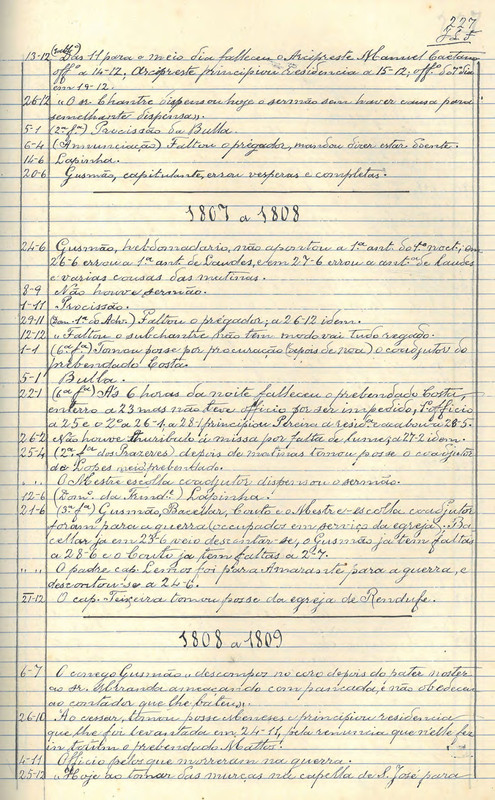 227
13-12 (sabb.º) Das 11 para o meio dia falleceu o Arcipreste Manuel Caetano
off.º a 14-12, Arcipreste principiou residencia a 15-12, off. do 7º dia
em 19-12.
26-12 „ O sr. Chantre dispensou hoje o sermão sem haver causa para
semelhante dispensa„.
5-1 (2ª fª) Procissão da Bulla.
6-4 (Annunciação) Faltou o prégador, mandou dizer estar doente.
14-6 Lapinha.
20-6 Gusmão, capitulante, errou vesperas e completas.
1807 a 1808
24-6 Gusmão, hebdomadario, não apontou a 1ª ant. do 1º noct.; em
26-6 errou a 1ª ant. de Laudes, e em 27-6 errou a ant.ª de Laudes
e varias cousas das matinas.
8-9 Não houve sermão.
1-11 Procissão.
29-11 (Dom. 1ª do Adv.) Faltou o prégador; a 26-12 idem.
12-12 „ Faltou o subchantre não tem modo vai tudo regado.
1-1 (6ª fª) Tomou posse por procuração (depois de noa) o coadjutor do
prebendado Costa.
5-1 Bulla.
22-1 (6ª fª) A's 6 horas da noite falleceu o prebendado Costa,
enterro a 23 mas não teve officio por ser impedido, 1º officio
a 25 e 2º a 26-1, a 28-1 principiou Pereira a resid.ª acabou a 28-5.
26-2 Não houve thuribulo á missa por falta de lume; a 27-2 idem.
25-4 (2ª fª dos Prazeres) depois de matinas tomou posse o coadjutor
do Lopes meio prebendado.
„ „ O Mestre escolla coadjutor dispensou o sermão.
12-6 (Dom.º da Trind.e) Lapinha.
21-6 (3ª fª) Gusmão, Bacellar, Couto e o Mestre-escolla coadjutor
foram para a guerra (occupados em serviço da egreja); Ba
cellar já em 23-6 veio descontar-se, o Gusmão já tem faltas
a 28-6 e o Couto já tem faltas a 2-7.
„ „ O padre cap. Lemos foi para Amarante para a guerra, e
descontou-se a 24-6.
21-12 O cap. Teixeira tomou posse da egreja de Rendufe.
1808 a 1809
6-7 O conego Gusmão „ descompoz no coro depois do pater noster
ao sr. Miranda ameaçando com pancada, e não obedeceu
ao contador que lhe bateu„.
26-10 Ao cessar, tomou posse Menezes e principiou residencia
que lhe foi levantada em 24-11, pela renuncia que nelle fez
in totum o prebendado Mattos.
4-11 Officio pelos que morreram na guerra.
25-12 „ Hoje ao tomar das murças na capella de S. José para